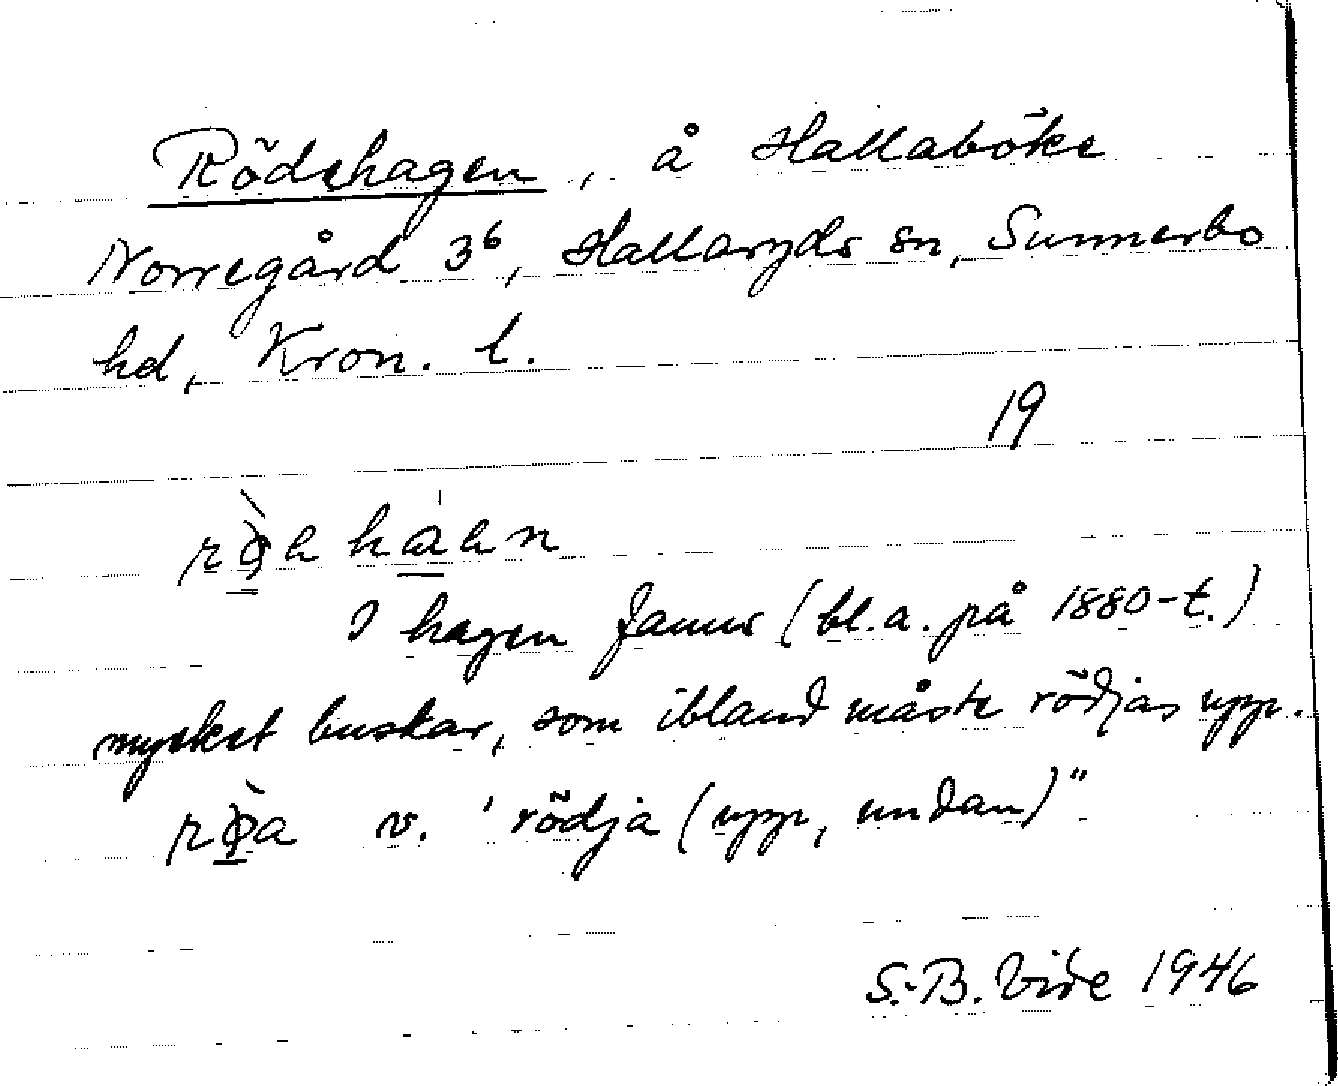 Rödehagen, å Hallaböke
Norregård 3⁶, Hallaryds sn, Sunnerbo
hd, Kron. l.
19
I hagen fanns (bl.a. på 1880-t.)
mycket buskar, som ibland måste rödjas upp.
v. 'rödja (upp, undan)"
S.-B. Vide 1946